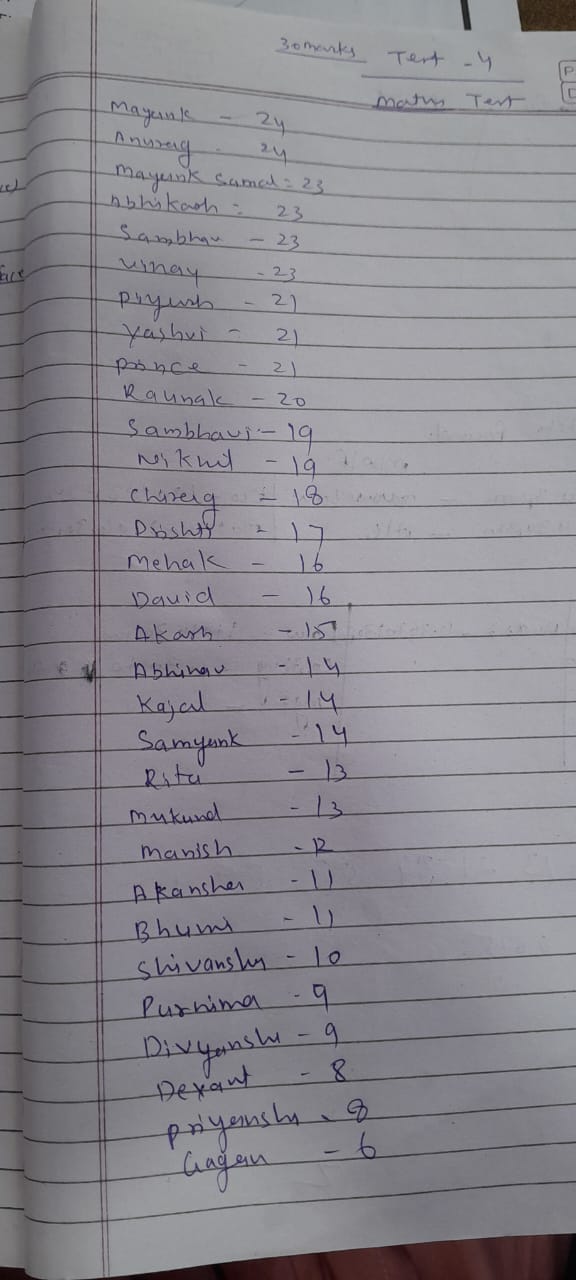 30 marks Test - 4
Maths Test
Mayank - 24
Anurag - 24
Mayank Samal = 23
Abhikash = 23
Sambhav - 23
Vinay - 23
Piyush - 21
Yashvi - 21
Prince - 21
Raunak - 20
Sambhavi - 19
Nikhil - 19
Chirag = 18
Drishti = 17
Mehak - 16
David - 16
Akash - 15
Abhinav - 14
Kajal - 14
Samyank - 14
Rita - 13
Mukund - 13
Manish - 12
Akansha - 11
Bhumi - 11
Shivanshu - 10
Purnima - 9
Divyanshu - 9
- 8
Priyanshu - 8
Gagan - 6